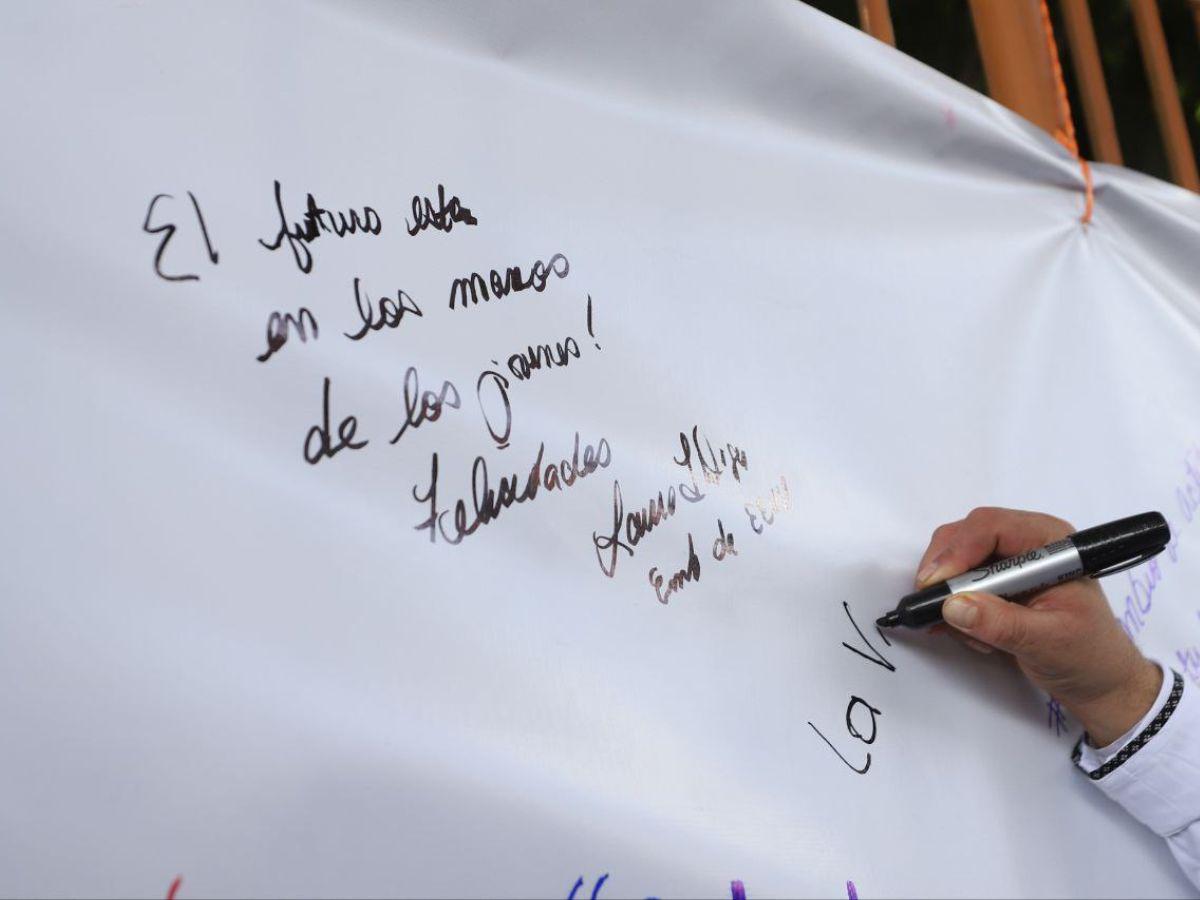 El futuro esta
en las manos
de los jovenes!
Felicidades
Emb de EEUU
La V
Sharpie